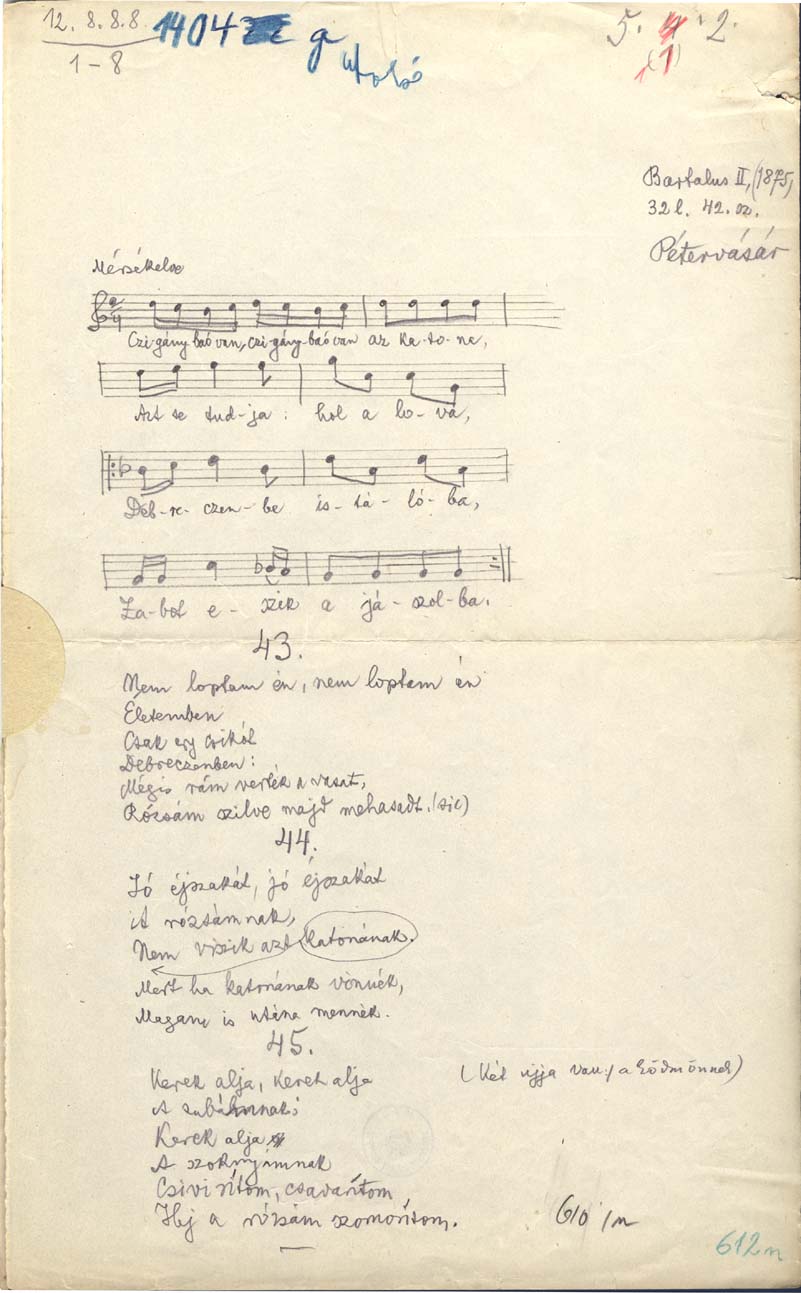 12. 8. 8. 8
1-8
1404 g
utolsó
5. 4. 2.
(1)
Bartalus II, (1875)
32 l. 42. sz.
Pétervásár
Mérsékelve
Czi-gány-baó van, czi-gány-baó van az ka-to-na,
Azt se tud-ja: hol a lo-va,
Deb-re-czen-be is-tá-ló-ba,
Za-bot e-szik a já-szol-ba.
43.
Nem loptam én, nem loptam én
Életemben
Csak egy csikót
Debreczenben:
Mégis rám verték a vasat,
Rózsám szilve majd mehasadt. (sic)
44.
Jó éjszakát, jó éjszakát
A rózsámnak,
Nem viszik azt katonának.
Mert ha katonának vinnék,
Magam is utána mennék.
45.
Kerek alja, kerek alja
(Két ujja van :/ a ködmönnek)
A subámnak;
Kerek alja
A szoknyámnak
Csivirítom, csavarítom
Hej a rózsám szomorítom.
610 /n
612n